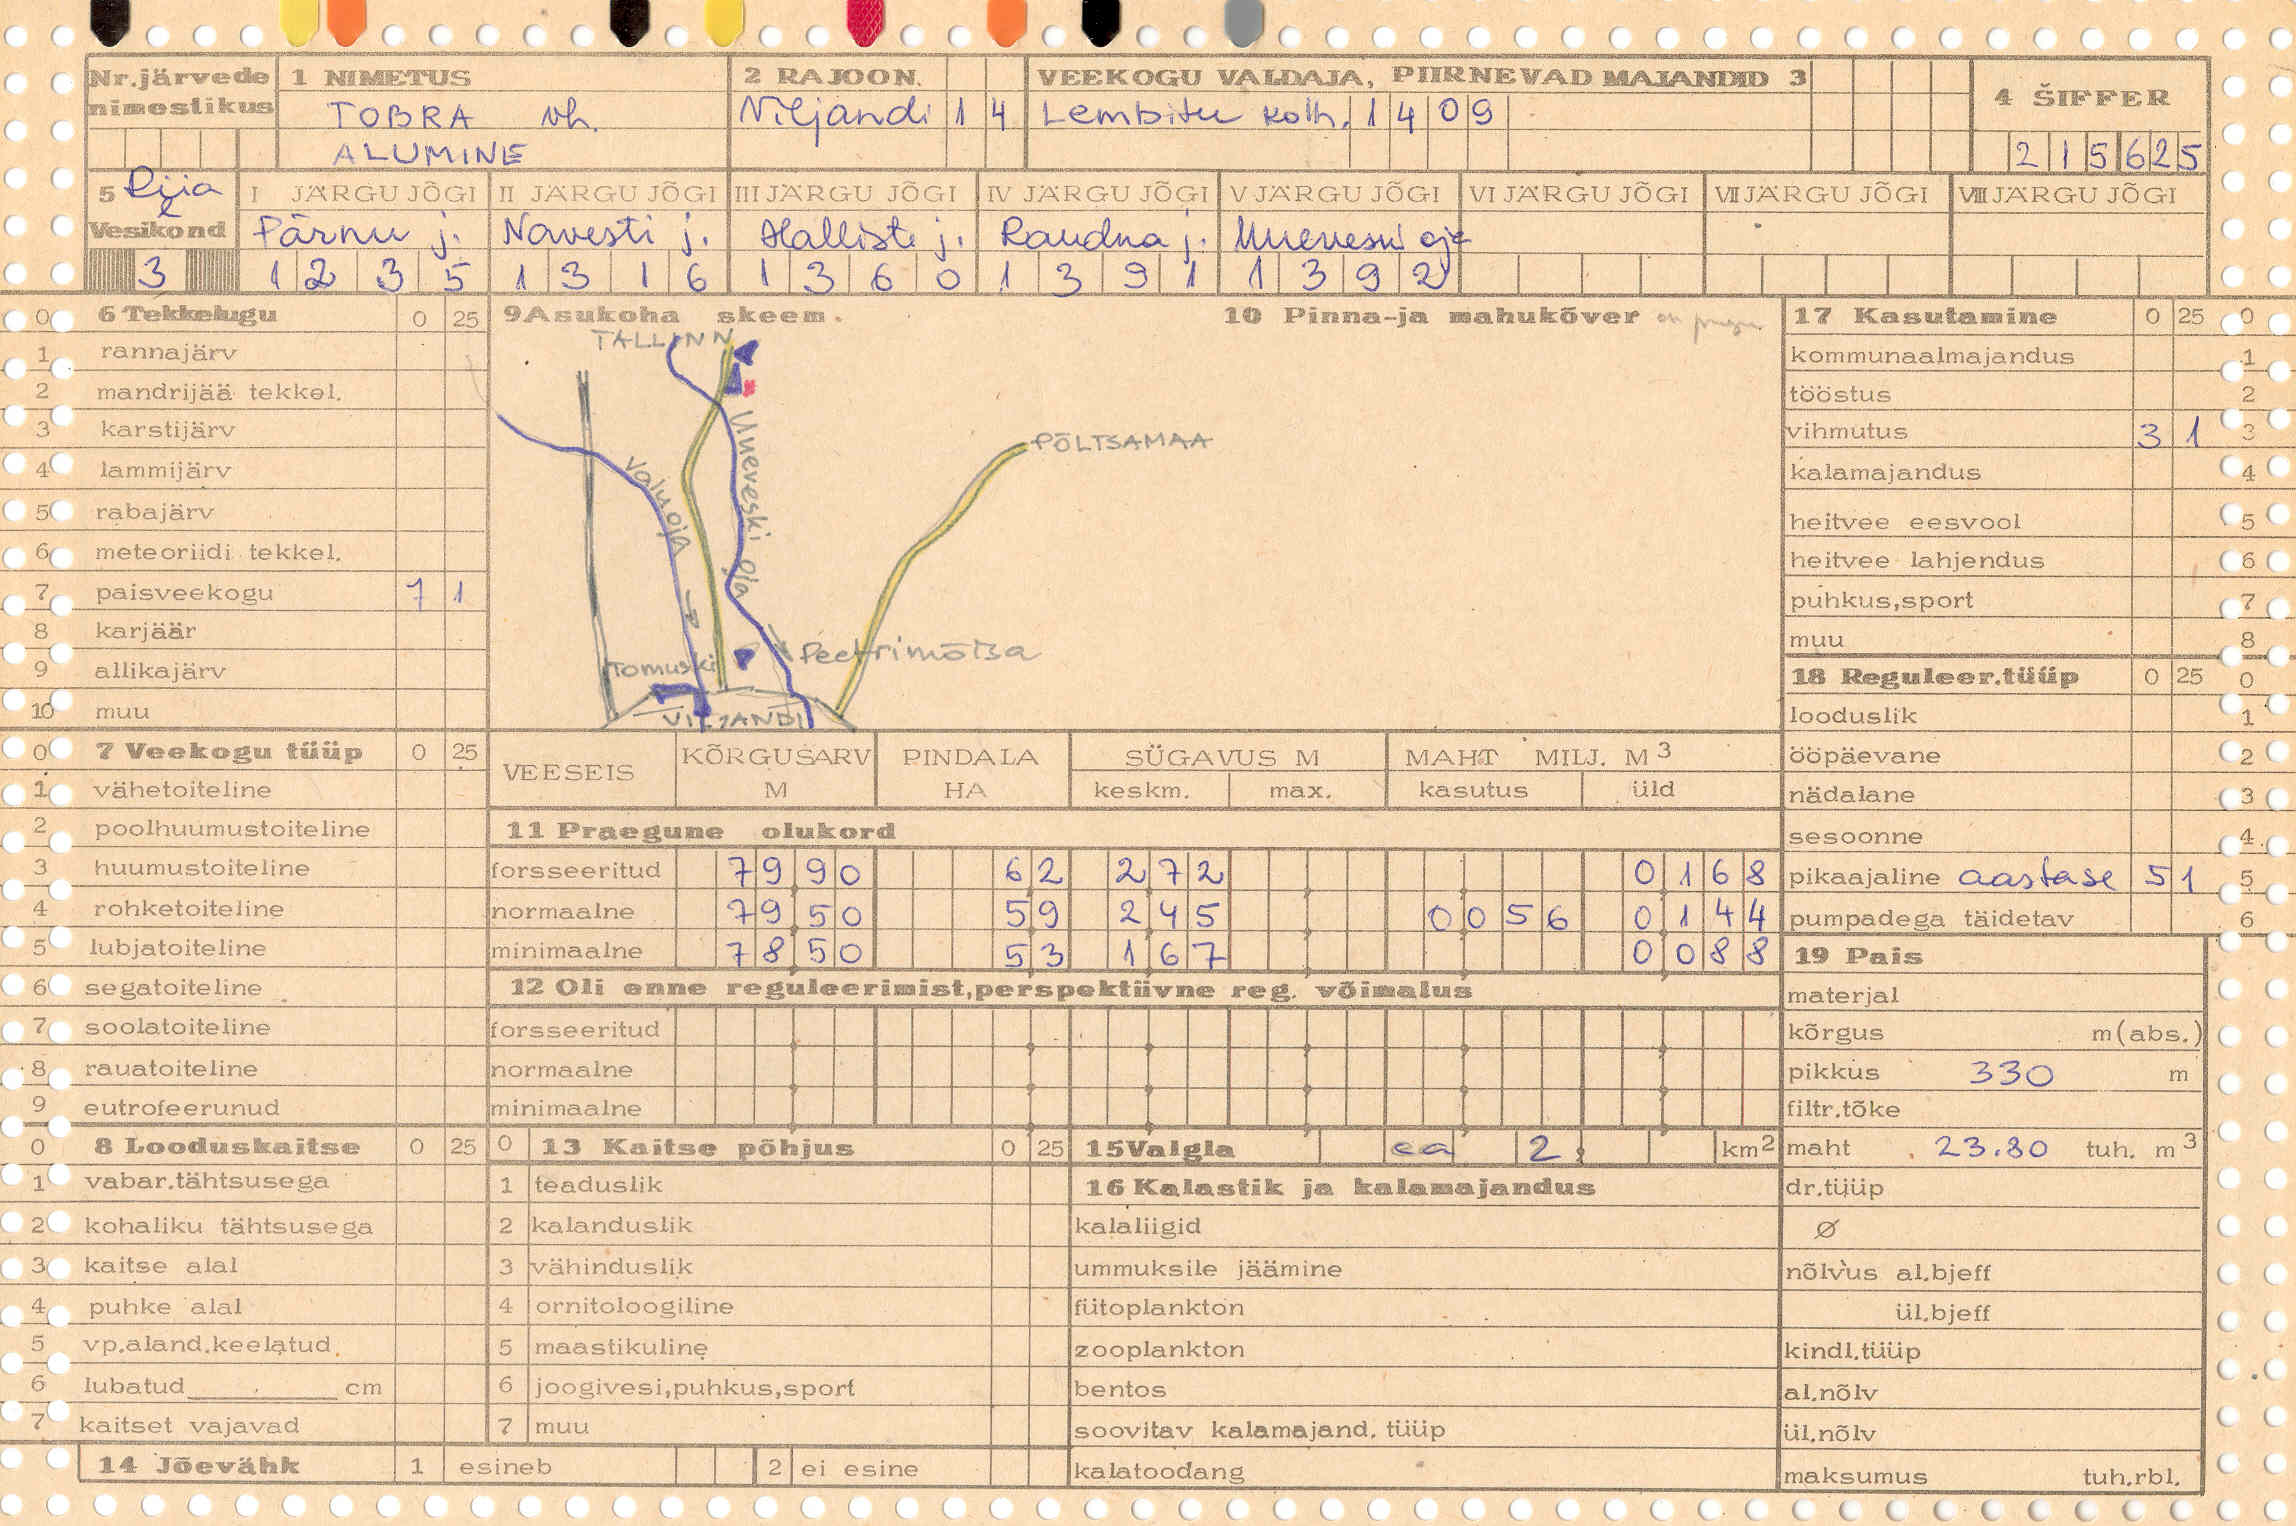 Nr.järvede nimestikus 1 NIMETUS 2 RAJOON. VEEKOGU VALDAJA, PIIRNEVAD MAJANDID 3 4 ŠIFFER
TOBRA vh. Viljandi 1 4 Lembitu kolh. 1 4 0 9
ALUMINE 2 1 5 6 2 5
5 Vesikond I JÄRGU JÕGI II JÄRGU JÕGI III JÄRGU JÕGI IV JÄRGU JÕGI V JÄRGU JÕGI VI JÄRGU JÕGI VII JÄRGU JÕGI VIII JÄRGU JÕGI
Pärnu j. Navesti j. Halliste j. Raudna j. Uueveski oja
3 1 2 3 5 1 3 1 6 1 3 6 0 1 3 9 1 1 3 9 2
0 6 Tekkelugu 0 25
1 rannajärv
2 mandrijää tekkel.
3 karstijärv
4 lammijärv
5 rabajärv
6 meteoriidi tekkel.
7 paisveekogu 7 1
8 karjäär
9 allikajärv
10 muu
0 7 Veekogu tüüp 0 25
1 vähetoiteline
2 poolhuumustoiteline
3 huumustoiteline
4 rohketoiteline
5 lubjatoiteline
6 segatoiteline
7 soolatoiteline
8 rauatoiteline
9 eutrofeerunud
0 8 Looduskaitse 0 25
1 vabar.tähtsusega
2 kohaliku tähtsusega
3 kaitse alal
4 puhke alal
5 vp.aland.keelatud
6 lubatud cm
7 kaitset vajavad
14 Jõevähk 1 esineb 2 ei esine
9 Asukoha skeem.
TALLINN
PÕLTSAMAA
Valuoja
Uueveski oja
Peetrimõisa
Tomuski
VILJANDI
10 Pinna-ja mahukõver
VEESEIS KÕRGUSARV M PINDALA HA SÜGAVUS M keskm. max. MAHT MILJ. M3 kasutus üld
11 Praegune olukord
forsseeritud 7 9 9 0 6 2 2 7 2 0 1 6 8
normaalne 7 9 5 0 5 9 2 4 5 0 0 5 6 0 1 4 4
minimaalne 7 8 5 0 5 3 1 6 7 0 0 8 8
12 Oli enne reguleerimist,perspektiivne reg. võimalus
forsseeritud
normaalne
minimaalne
0 13 Kaitse põhjus 0 25
1 teaduslik
2 kalanduslik
3 vähinduslik
4 ornitoloogiline
5 maastikuline
6 joogivesi,puhkus,sport
7 muu
15 Valgla ca 2, km2
16 Kalastik ja kalamajandus
kalaliigid
ummuksile jäämine
fütoplankton
zooplankton
bentos
soovitav kalamajand. tüüp
kalatoodang
17 Kasutamine 0 25 0
kommunaalmajandus 1
tööstus 2
vihmutus 3 1 3
kalamajandus 4
heitvee eesvool 5
heitvee lahjendus 6
puhkus,sport 7
muu 8
18 Reguleer.tüüp 0 25 0
looduslik 1
ööpäevane 2
nädalane 3
sesoonne 4
pikaajaline aastase 5 1 5
pumpadega täidetav 6
19 Pais
materjal
kõrgus m(abs.)
pikkus 330 m
filtr.tõke
maht 23.80 tuh. m3
dr.tüüp
Ø
nõlvus al.bjeff
ül.bjeff
kindl.tüüp
al.nõlv
ül.nõlv
maksumus tuh.rbl.